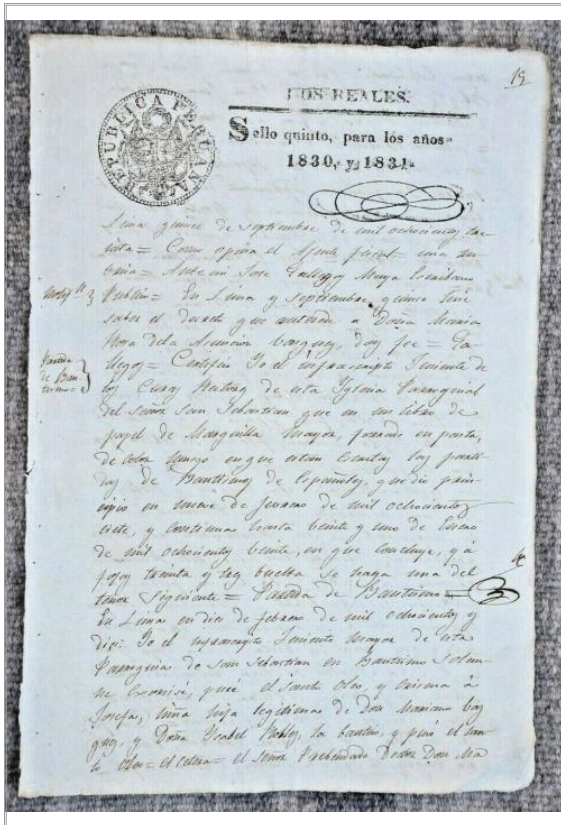 19
DOS REALES.
Sello quinto, para los años
1830, y 1831.
REPUBLICA PERUANA
Lima quince de septiembre de mil ochocientos tre-
inta = Como opina el Ajente fiscal = una
= Ante mi Jose Gallegos Escribano
Publico = En Lima y septiembre quince hice
saber el decreto que antecede a Doña Maria
Rosa dela Asuncion Vasquez, doy fee = Ga-
llegos = Certifico Yo el infrascripto Teniente de
los Curas Rectores de esta Yglesia Parroquial
del señor San Sebastian que en un libro de
papel de Marquilla mayor, forrado en pasta,
de color en que estan escritas las parti-
das de Bautismos de Españoles, que dio prin-
cipio en nueve de febrero de mil ochocientos
siete, y continua hasta beinte y uno de Enero
de mil ochocientos beinte, en que concluye, y á
fojas treinta y tres buelta se haya una del
tenor siguiente = Partida de Bautismo =
En Lima en dies de febrero de mil ochocientos y
dies: Yo el infrascripto Teniente mayor de esta
Parroquia de san Sebastian en Bautismo solem-
ne exorcisé, puse el santo oleo, y crisma á
Josefa, niña hija legitima de Don Mariano Vas
quez, y Doña Ysabel Robles, la bautisó, y puso el san-
to oleo = el señor Prebendado Doctor Don Ma
Partida
de Bau-
tismo =